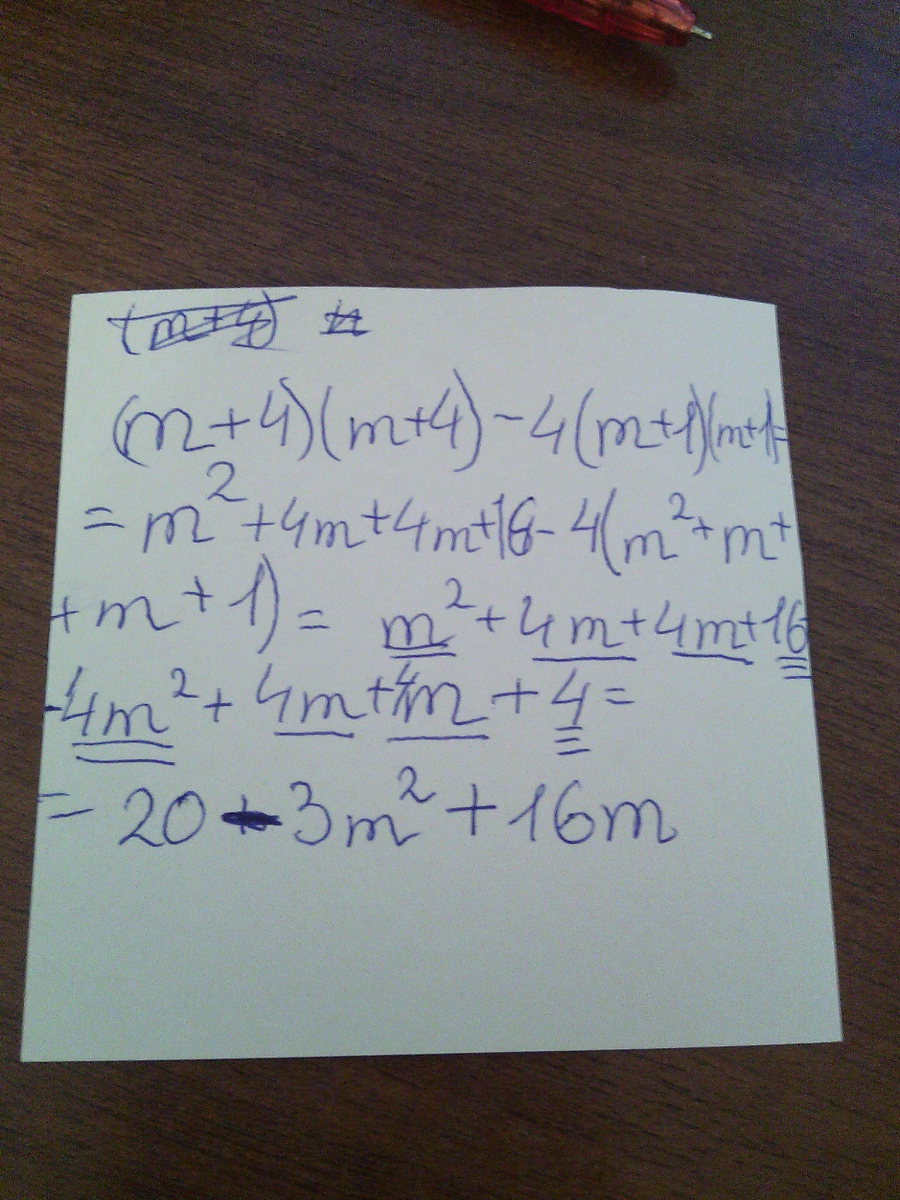 (m+4)
(m+4)(m+4)-4(m+1)(m+1)=
= m²+4m+4m+16-4(m²+m+
+m+1) = m²+4m+4m+16
-4m²+4m+4m+4=
= 20-3m²+16m